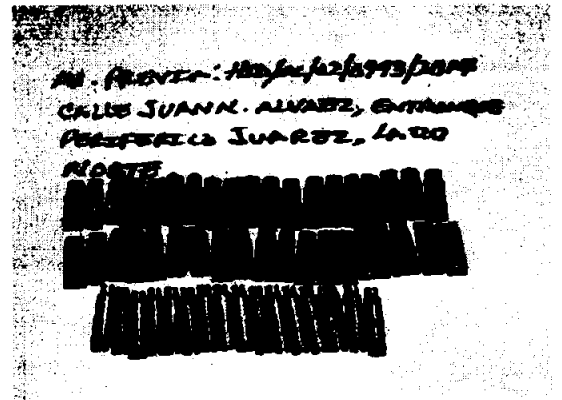 AV. PREVIA:
CALLE JUAN N. ALVAREZ,
PERIFERICO JUAREZ, LADO
NORTE